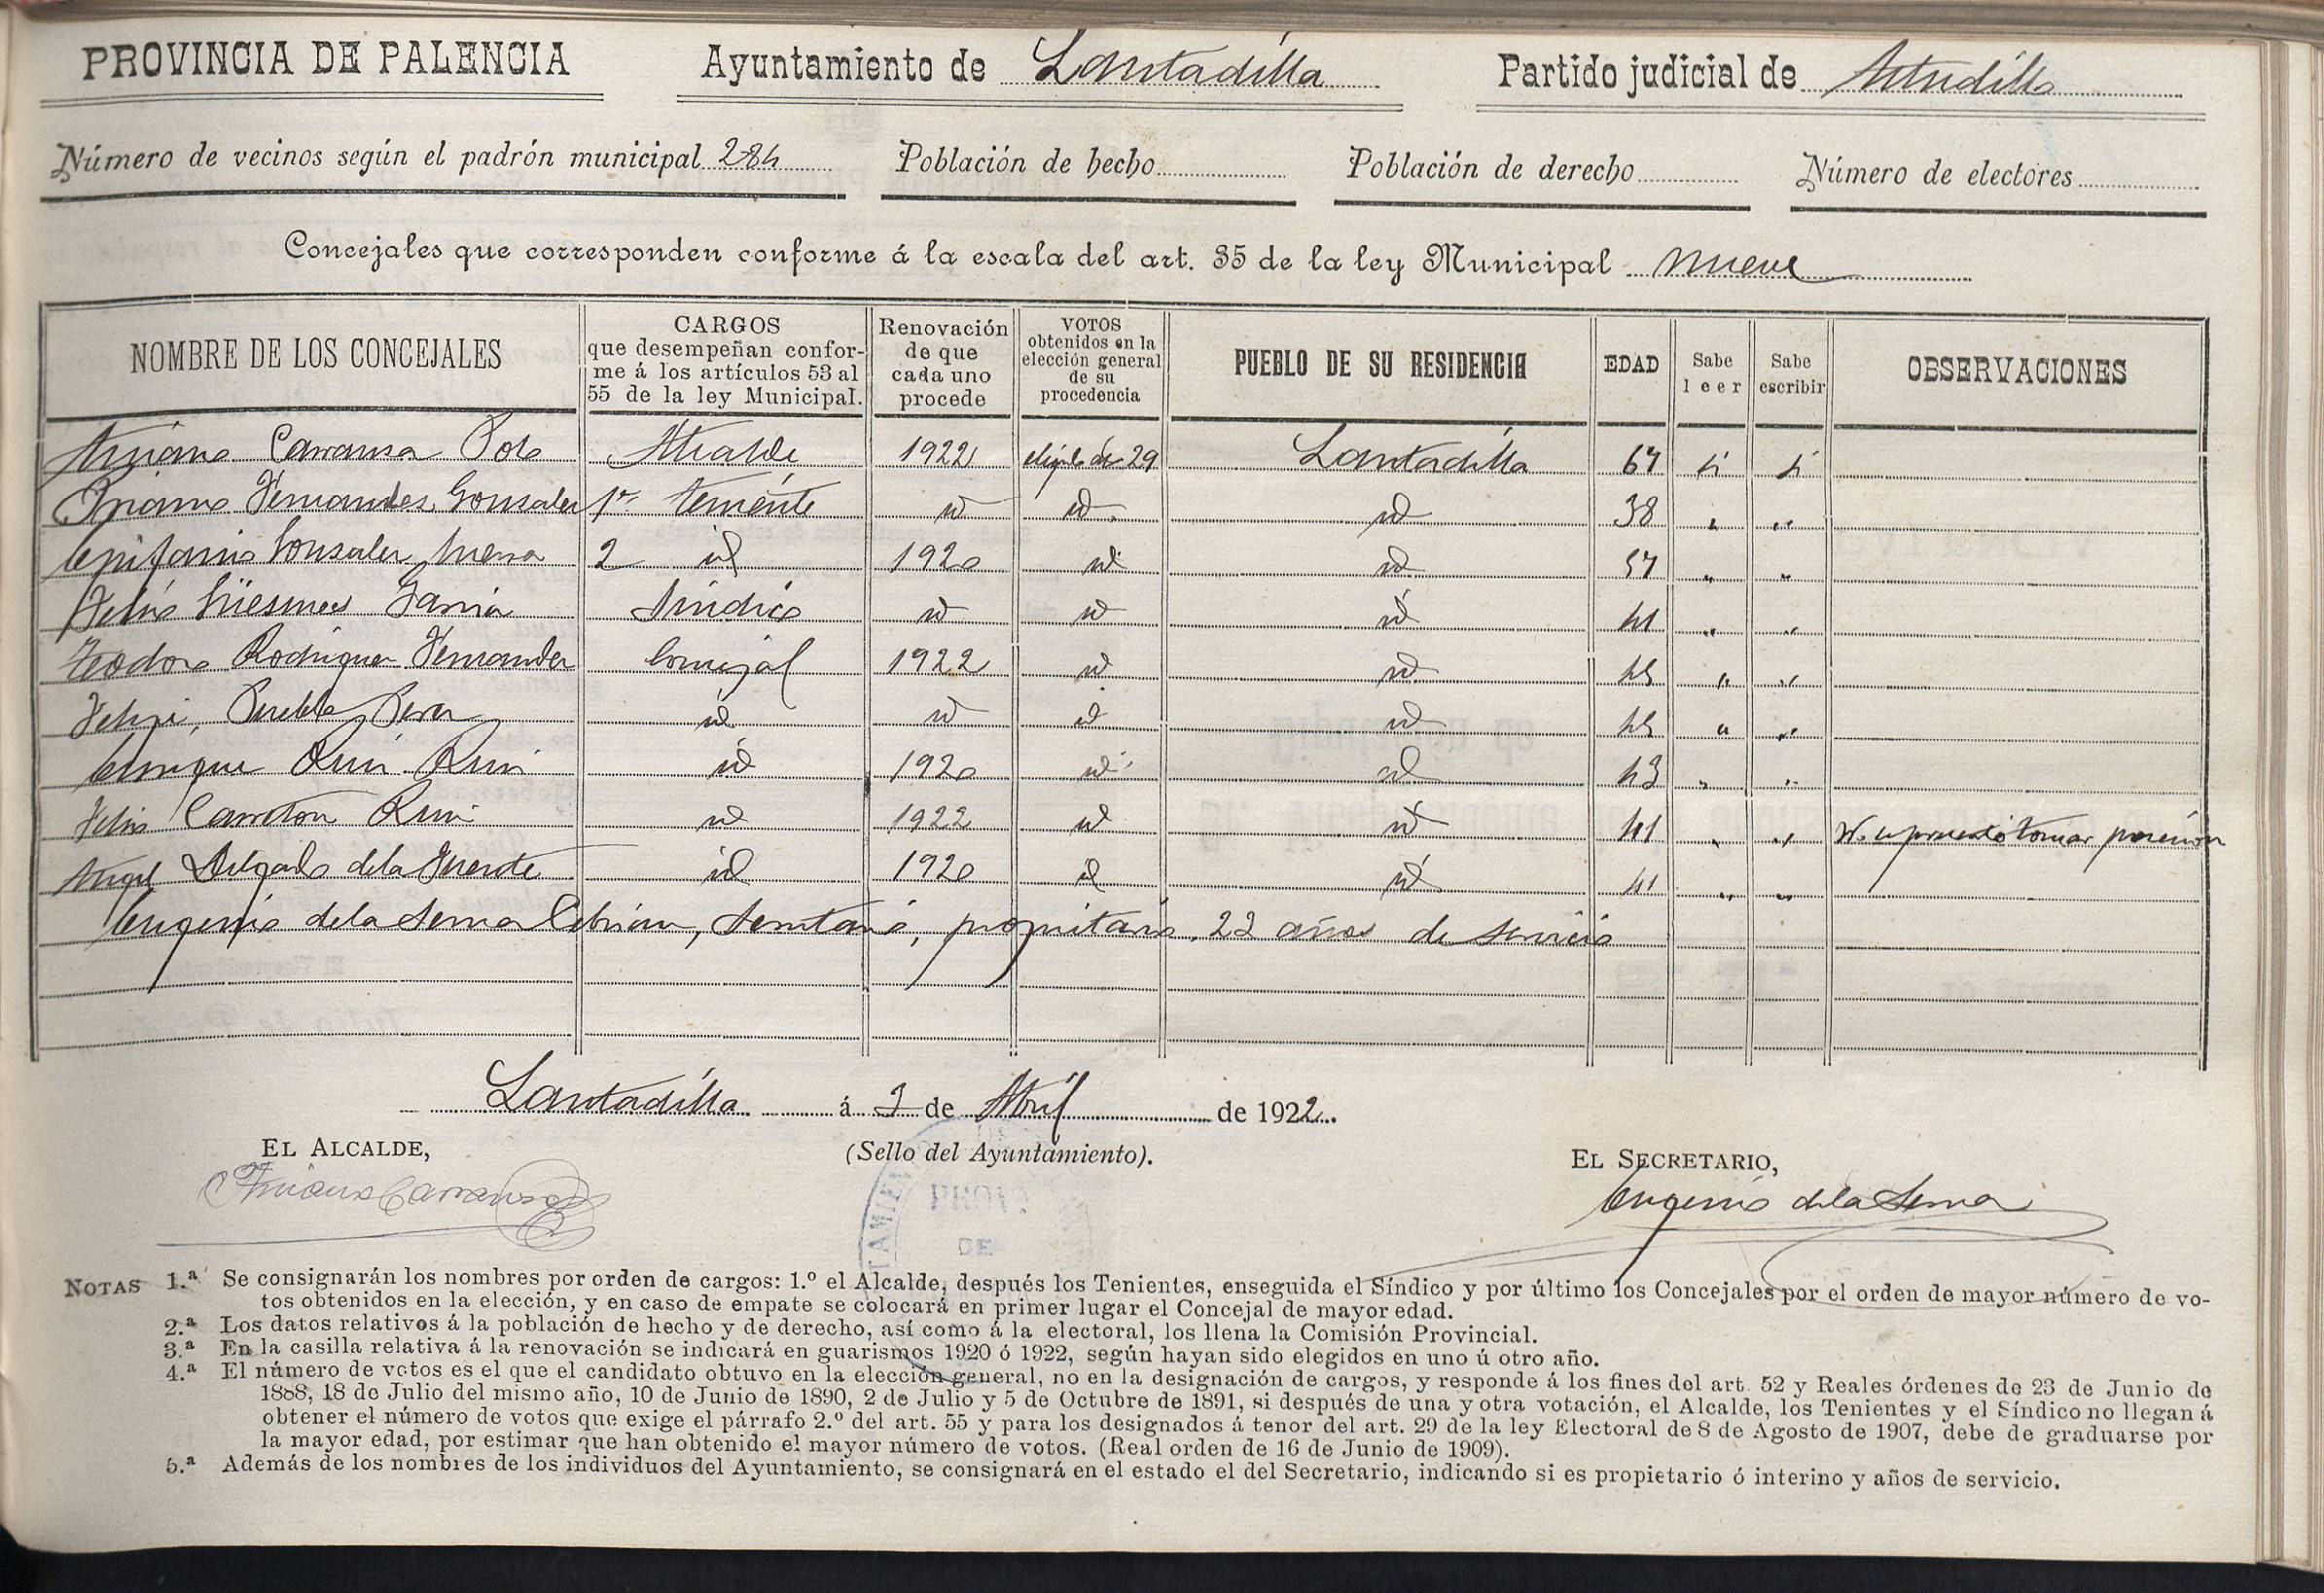 PROVINCIA DE PALENCIA Ayuntamiento de Lantadilla Partido judicial de Astudillo
Número de vecinos según el padrón municipal 284 Población de hecho Población de derecho Número de electores
Concejales que corresponden conforme á la escala del art. 35 de la ley Municipal nueve
NOMBRE DE LOS CONCEJALES
CARGOS
que desempeñan confor-
me á los artículos 53 al
55 de la ley Municipal.
Renovación
de que
cada uno
procede
VOTOS
obtenidos en la
elección general
de su
procedencia
PUEBLO DE SU RESIDENCIA
EDAD
Sabe
leer
Sabe
escribir
OBSERVACIONES
Carranza Polo Alcalde 1922 29 Lantadilla 67 si si
Fernandez Gonzalez 1er teniente id id id 38 " "
Epifanio Gonzalez 2 id 1920 id id 57 " "
Felix Güesmes Garcia Sindico id id id 41 " "
Teodoro Rodriguez Fernandez Concejal 1922 id id 45 " "
Felipe Puebla Perez id id id id 45 " "
Enrique Ruiz Ruiz id 1920 id id 43 " "
Felix Carreton Ruiz id 1922 id id 41 " " tomar posesion
Angel Delgado de la Fuente id 1920 id id 41 " "
Eugenio de la Serna Cebrian, Secretario, propietario, 22 años de servicio
Lantadilla á 3 de Abril de 1922.
EL ALCALDE, (Sello del Ayuntamiento). EL SECRETARIO,
Carranza Eugenio de la Serna
NOTAS 1.ª Se consignarán los nombres por orden de cargos: 1.º el Alcalde, después los Tenientes, enseguida el Síndico y por último los Concejales por el orden de mayor número de vo-
tos obtenidos en la elección, y en caso de empate se colocará en primer lugar el Concejal de mayor edad.
2.ª Los datos relativos á la población de hecho y de derecho, así como á la electoral, los llena la Comisión Provincial.
3.ª En la casilla relativa á la renovación se indicará en guarismos 1920 ó 1922, según hayan sido elegidos en uno ú otro año.
4.ª El número de votos es el que el candidato obtuvo en la elección general, no en la designación de cargos, y responde á los fines del art. 52 y Reales órdenes de 23 de Junio de
1888, 18 de Julio del mismo año, 10 de Junio de 1890, 2 de Julio y 5 de Octubre de 1891, si después de una y otra votación, el Alcalde, los Tenientes y el Síndico no llegan á
obtener el número de votos que exige el párrafo 2.º del art. 55 y para los designados á tenor del art. 29 de la ley Electoral de 8 de Agosto de 1907, debe de graduarse por
la mayor edad, por estimar que han obtenido el mayor número de votos. (Real orden de 16 de Junio de 1909).
5.ª Además de los nombres de los individuos del Ayuntamiento, se consignará en el estado el del Secretario, indicando si es propietario ó interino y años de servicio.